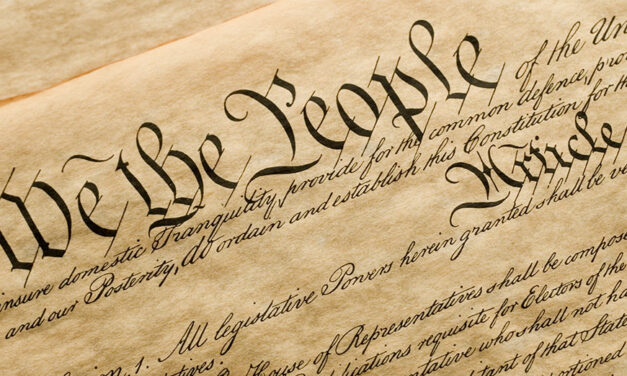 We the People of the Un
insure domestic Tranquility, provide for the common defence, pro
and our Posterity, do ordain and establish this Constitution for the
Article
ction. 1. All legislative Powers herein granted shall be ve
tatives.
House of Representatives shall be compose
lifications requisite for Electors of the
ntative who shall not ha
tant of that State
rtioned